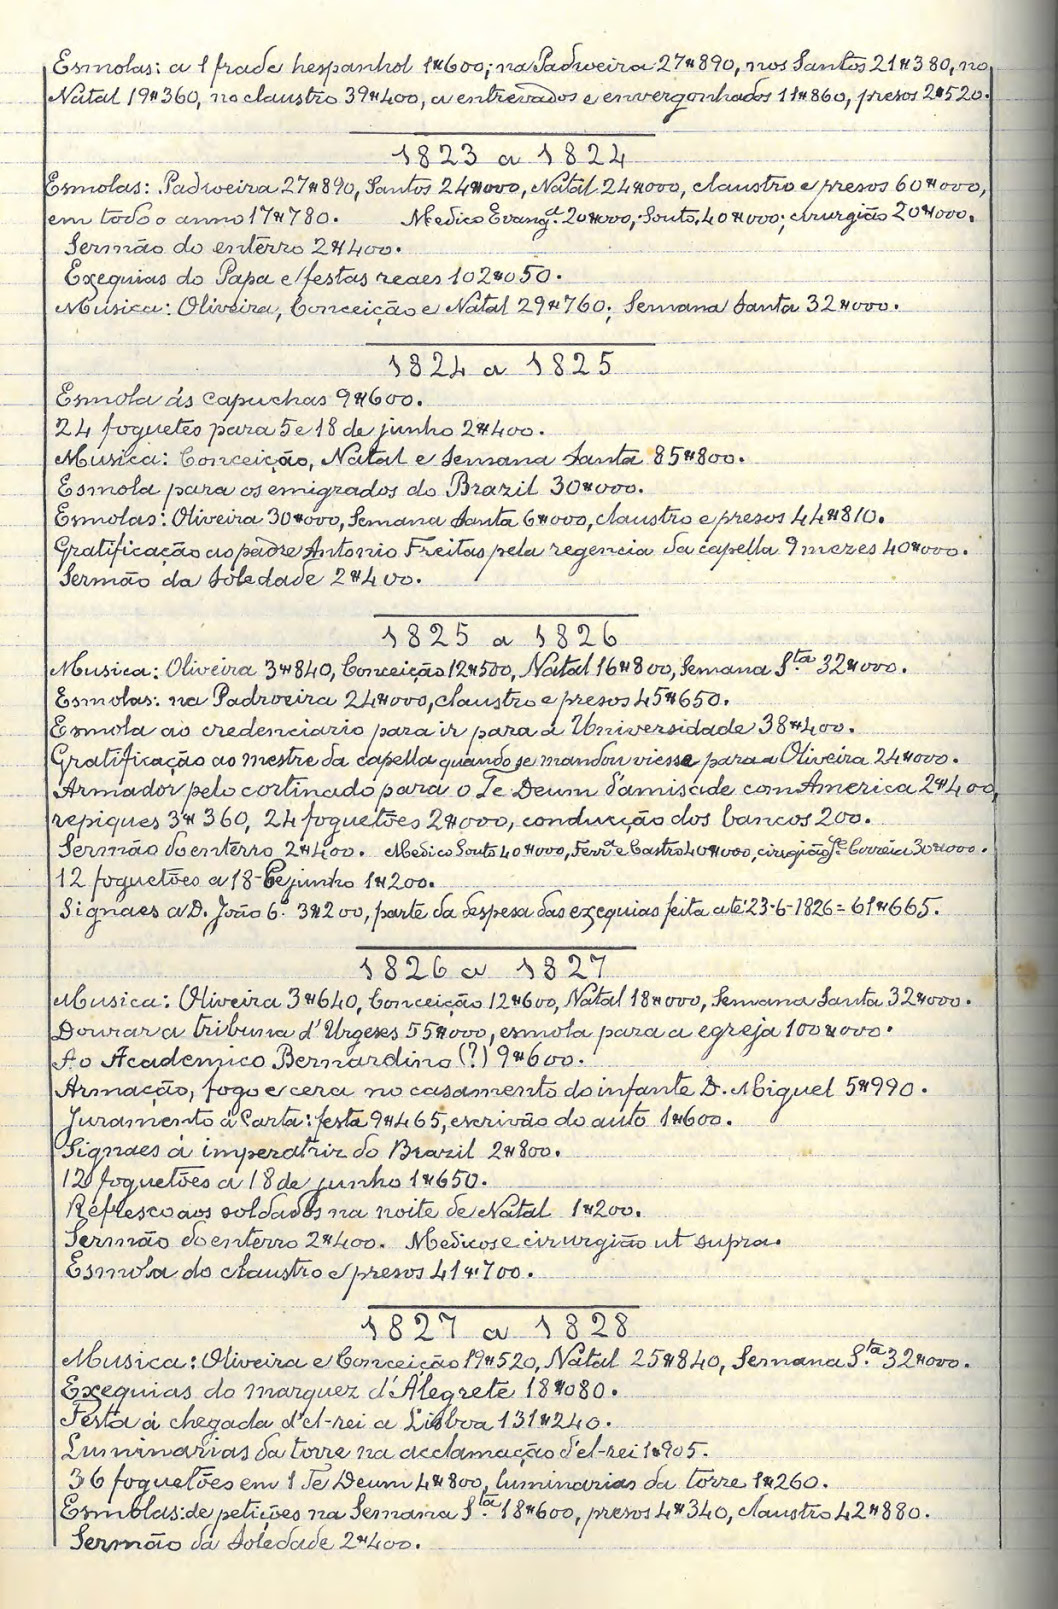 Esmolas: a 1 frade hespanhol 1$600; na Padroeira 27$890, nos Santos 21$380, no
Natal 19$360, no claustro 39$400, a entrevados e envergonhados 11$860, presos 2$520.
1823 a 1824
Esmolas: Padroeira 27$890, Santos 24$000, Natal 24$000, claustro e presos 60$000,
em todo o anno 17$780. Medico Evang.ta 20$000, Souto, 40$000; cirurgião 20$000.
Sermão do enterro 2$400.
Exequias do Papa e festas reaes 102$050.
Musica: Oliveira, Conceição e Natal 29$760; Semana Santa 32$000.
1824 a 1825
Esmola ás capuchas 9$600.
24 foguetes para 5 e 18 de junho 2$400.
Musica: Conceição, Natal e Semana Santa 85$800.
Esmola para os emigrados do Brazil 30$000.
Esmolas: Oliveira 30$000, Semana Santa 6$000, claustro e presos 44$810.
Gratificação ao padre Antonio Freitas pela regencia da capella 9 mezes 40$000.
Sermão da Soledade 2$400.
1825 a 1826
Musica: Oliveira 3$840, Conceição 12$500, Natal 16$800, Semana S.ta 32$000.
Esmolas: na Padroeira 24$000, claustro e presos 45$650.
Esmola ao credenciario para ir para a Universidade 38$400.
Gratificação ao mestre da capella quando se mandou viesse para a Oliveira 24$000.
Armador pelo cortinado para o Te Deum d'amisade com America 2$400,
repiques 3$360, 24 foguetões 2$000, conducção dos bancos 200.
Sermão do enterro 2$400. Medico Souto 40$000, Ferr.a e Castro 40$000, cirurgião J.e Correia 30$000.
12 foguetões a 18 de junho 1$200.
Signaes a D. João 6.º 3$200, parte da despesa das exequias feita até 23-6-1826 = 61$665.
1826 a 1827
Musica: Oliveira 3$640, Conceição 12$600, Natal 18$000, Semana Santa 32$000.
Dourar a tribuna d'Urgeses 55$000, esmola para a egreja 100$000.
Ao Academico Bernardino (?) 9$600.
Armação, fogo e cera no casamento do infante D. Miguel 5$990.
Juramento á Carta: festa 9$465, escrivão do auto 1$600.
Signaes á imperatriz do Brazil 2$800.
12 foguetões a 18 de junho 1$650.
Refresco aos soldados na noite de Natal 1$200.
Sermão do enterro 2$400. Medicos e cirurgião ut supra.
Esmola do claustro e presos 41$700.
1827 a 1828
Musica: Oliveira e Conceição 19$520, Natal 25$840, Semana S.ta 32$000.
Exequias do marquez d'Alegrete 18$080.
Festa á chegada d'el-rei a Lisboa 131$240.
Luminarias da torre na acclamação d'el-rei 1$905.
36 foguetões em 1 Te Deum 4$800, luminarias da torre 1$260.
Esmolas: de petições na Semana S.ta 18$600, presos 4$340, claustro 42$880.
Sermão da Soledade 2$400.